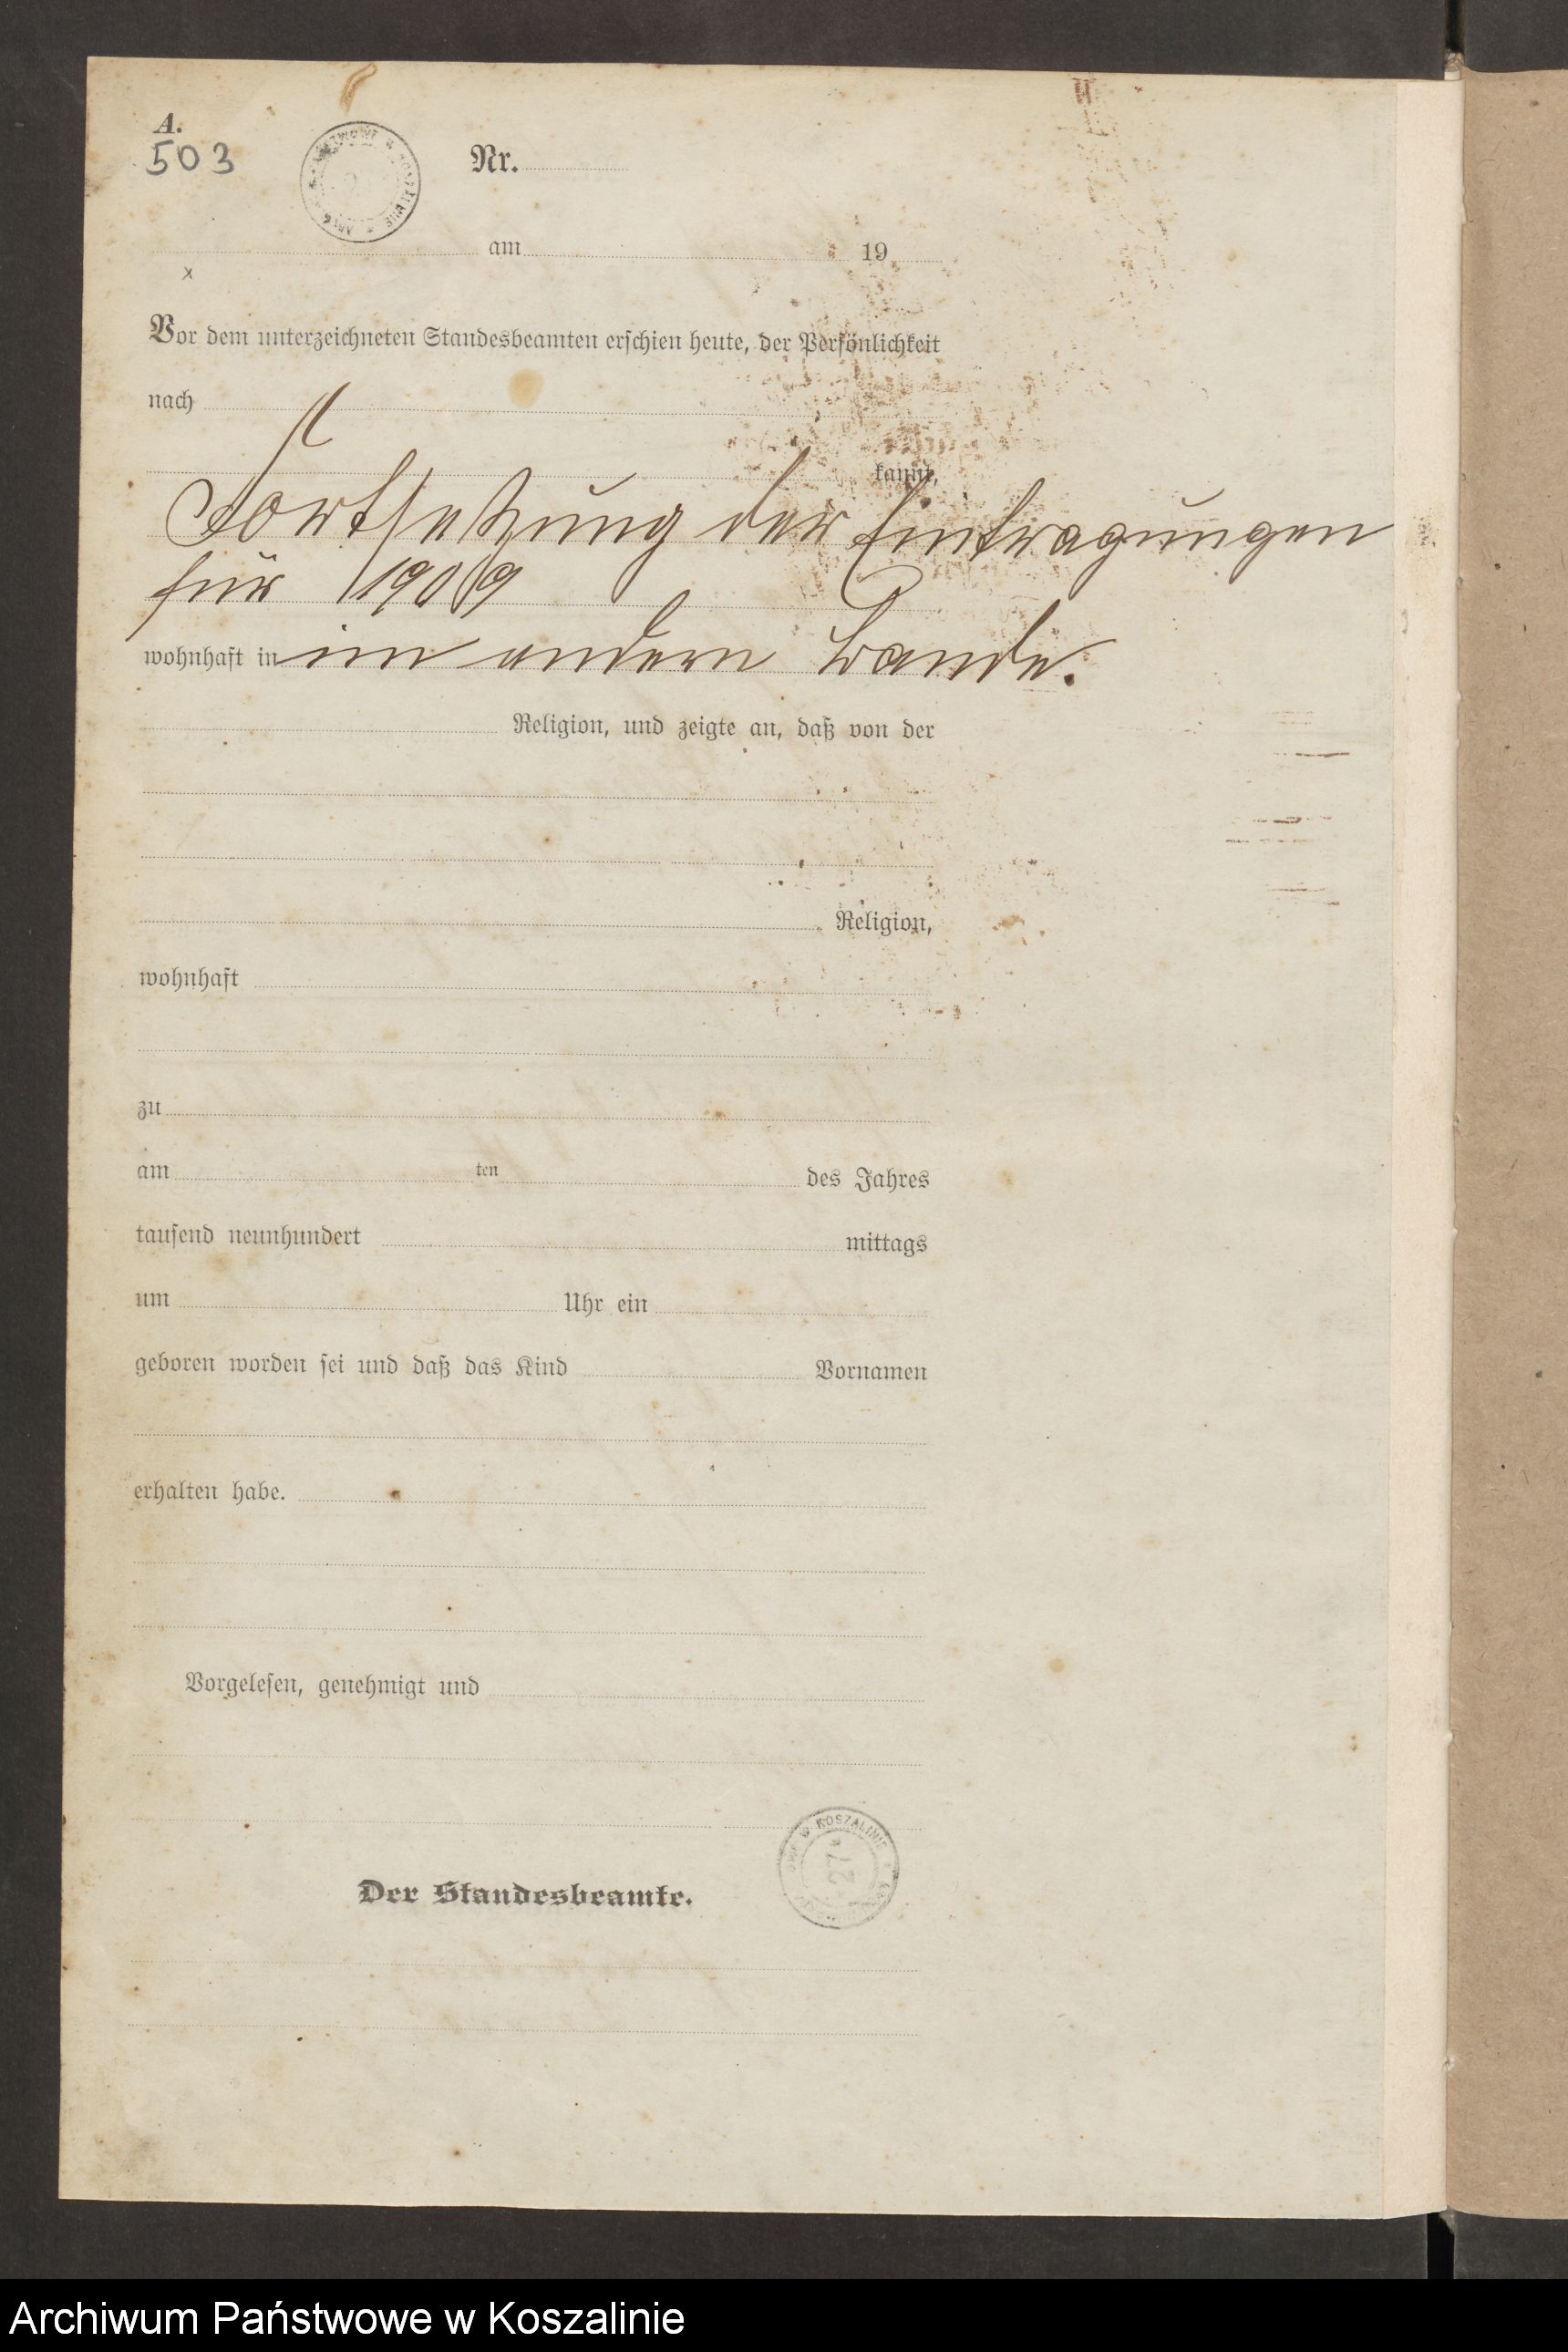 A.
503
Nr.
am 19
x
Vor dem unterzeichneten Standesbeamten erschien heute, der Persönlichkeit
nach
kannt,
Fortsetzung der Eintragungen
für 1909
wohnhaft in im andern Bande.
Religion, und zeigte an, daß von der
Religion,
wohnhaft
zu
am ten des Jahres
tausend neunhundert mittags
um Uhr ein
geboren worden sei und daß das Kind Vornamen
erhalten habe.
Vorgelesen, genehmigt und
W KOSZALINIE
Der Standesbeamte.
Archiwum Państwowe w Koszalinie